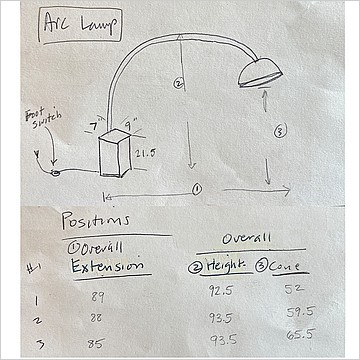 Arc Lamp
②
Foot
switch
7" 9"
③
21.5
①
Positions
① Overall Overall
#1 Extension ② Height ③ Cone
1 89 92.5 52
2 88 93.5 59.5
3 85 93.5 65.5